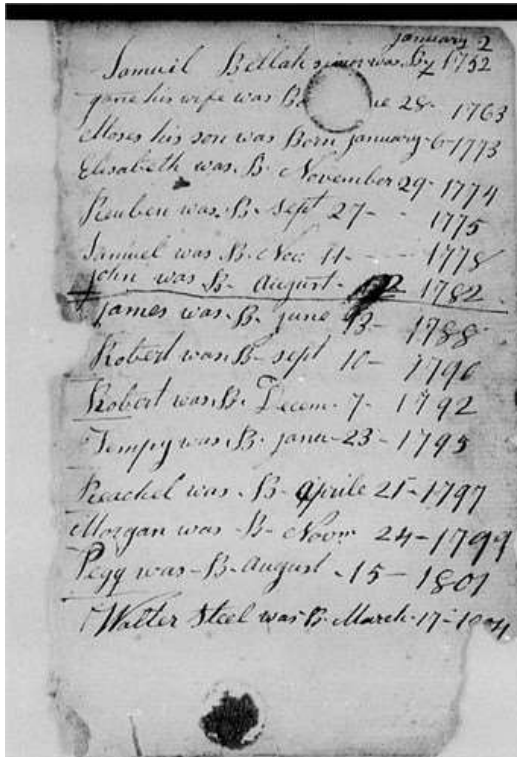 january 2
Samuil Bellah was By 1752
gane his wife was 28- 1763
Moses his son was Born january-6-1773
Elisabeth was.B. November 29-1774
Reuben was.B- sept 27- - 1775
Samuel was B-Nov. 11- - 1778
john was B- August- 1782
james was.B. june 13- 1788
Robert was B- sept 10- 1790
Robert was.B. Decem. 7- 1792
Tempy was.B. janu-23-1795
Reachel was.B- aprile 21-1797
Morgan was-B-Novm 24-1799
Pegy was-B-august-15-1801
Walter Steel was B-March-17-1804